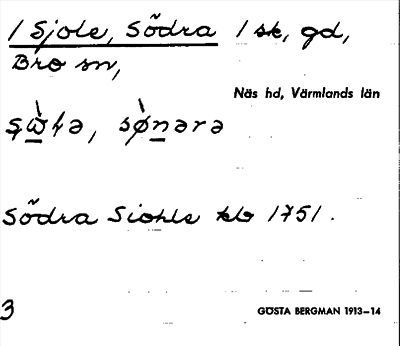 1 Sjole, Södra 1 sk, gd,
Bro sn,
Näs hd, Värmlands län
sønərə
Södra Siohle kb 1751.
3
GÖSTA BERGMAN 1913–14